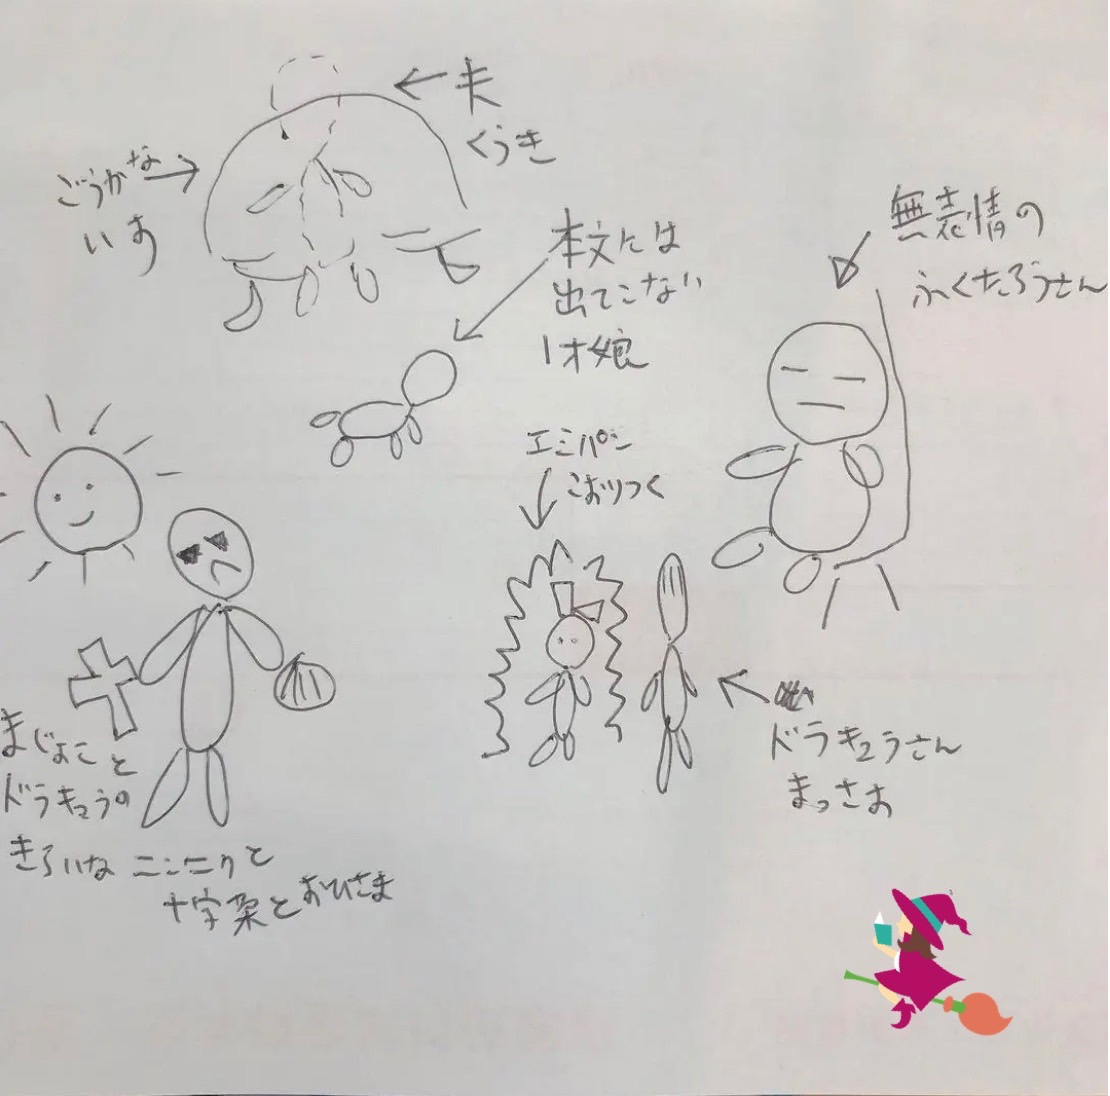 夫
くうき
ごうかな
いす
本文には
出てこない
1才娘
無表情の
ふくたろうさん
エミパン
こおりつく
ドラキュラさん
まっさお
まじょこと
ドラキュラの
きらいなニンニクと
十字架とおひさま